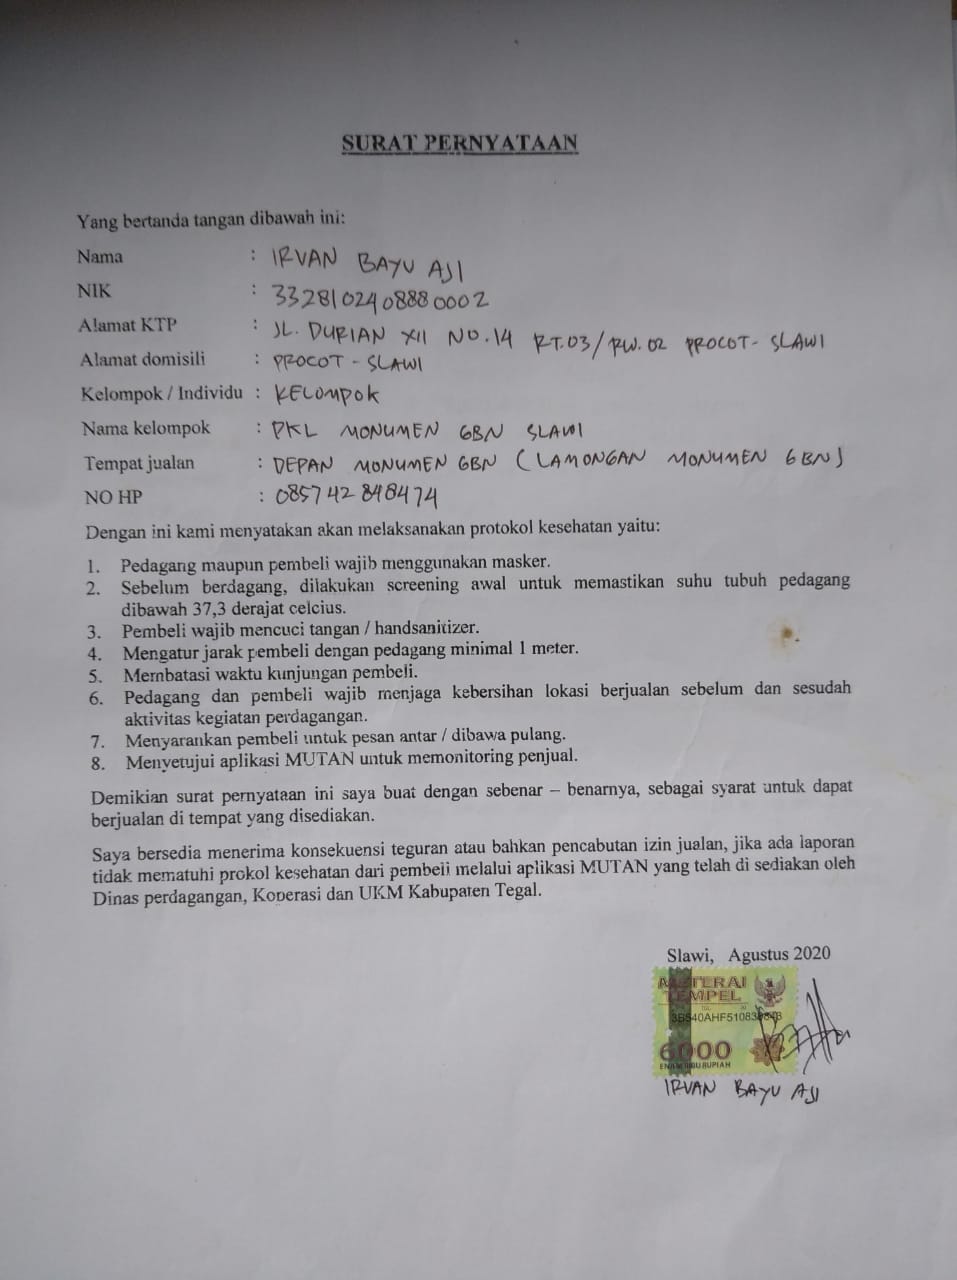 SURAT PERNYATAAN
Yang bertanda tangan dibawah ini:
Nama : IRVAN BAYU AJI
NIK : 3328102408880002
Alamat KTP : JL. DURIAN XII NO.14 RT.03/RW.02 PROCOT-SLAWI
Alamat domisili : PROCOT-SLAWI
Kelompok / Individu : KELOMPOK
Nama kelompok : PKL MONUMEN GBN SLAWI
Tempat jualan : DEPAN MONUMEN GBN (LAMONGAN MONUMEN GBN)
NO HP : 085742848474
Dengan ini kami menyatakan akan melaksanakan protokol kesehatan yaitu:
1. Pedagang maupun pembeli wajib menggunakan masker.
2. Sebelum berdagang, dilakukan screening awal untuk memastikan suhu tubuh pedagang
dibawah 37,3 derajat celcius.
3. Pembeli wajib mencuci tangan / handsanitizer.
4. Mengatur jarak pembeli dengan pedagang minimal 1 meter.
5. Membatasi waktu kunjungan pembeli.
6. Pedagang dan pembeli wajib menjaga kebersihan lokasi berjualan sebelum dan sesudah
aktivitas kegiatan perdagangan.
7. Menyarankan pembeli untuk pesan antar / dibawa pulang.
8. Menyetujui aplikasi MUTAN untuk memonitoring penjual.
Demikian surat pernyataan ini saya buat dengan sebenar – benarnya, sebagai syarat untuk dapat
berjualan di tempat yang disediakan.
Saya bersedia menerima konsekuensi teguran atau bahkan pencabutan izin jualan, jika ada laporan
tidak mematuhi prokol kesehatan dari pembeli melalui aplikasi MUTAN yang telah di sediakan oleh
Dinas perdagangan, Koperasi dan UKM Kabupaten Tegal.
Slawi, Agustus 2020
METERAI
TEMPEL
6000
ENAM RIBU RUPIAH
IRVAN BAYU AJI